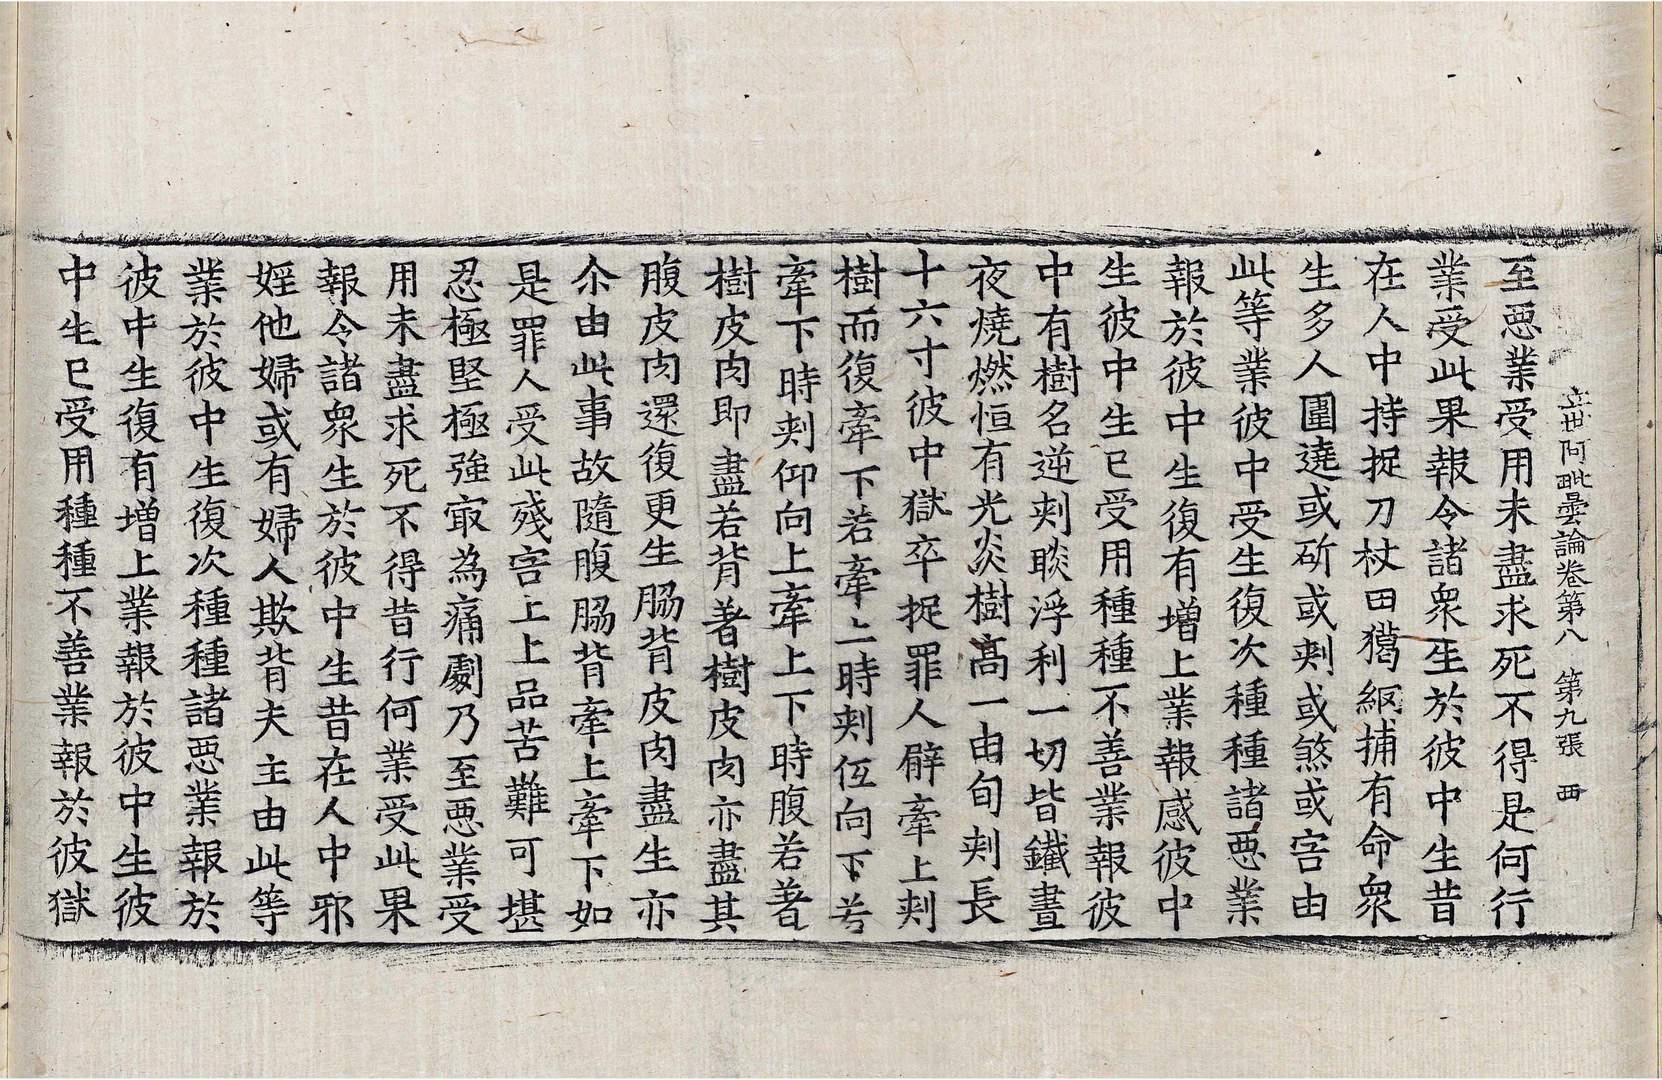 立世阿毗曇論卷第八 第九張 西
至惡業受用未盡求死不得是何行
業受此果報令諸衆生於彼中生昔
在人中持捉刀杖田獦網捕有命衆
生多人圍遶或斫或刾或煞或害由
此等業彼中受生復次種種諸惡業
報於彼中生復有增上業報感彼中
生彼中生已受用種種不善業報彼
中有樹名逆刾睒浮利一切皆鐵晝
夜燒燃恒有光炎樹高一由旬刾長
十六寸彼中獄卒捉罪人臂牽上刾
樹而復牽下若牽上時刾低向下若
牽下時刾仰向上牽上下時腹若著
樹皮肉即盡若背著樹皮肉亦盡其
腹皮肉還復更生脇背皮肉盡生亦
尒由此事故隨腹脇背牽上牽下如
是罪人受此殘害上上品苦難可堪
忍極堅極強㝡為痛劇乃至惡業受
用未盡求死不得昔行何業受此果
報令諸衆生於彼中生昔在人中邪
婬他婦或有婦人欺背夫主由此等
業於彼中生復次種種諸惡業報於
彼中生復有增上業報於彼中生彼
中生已受用種種不善業報於彼獄